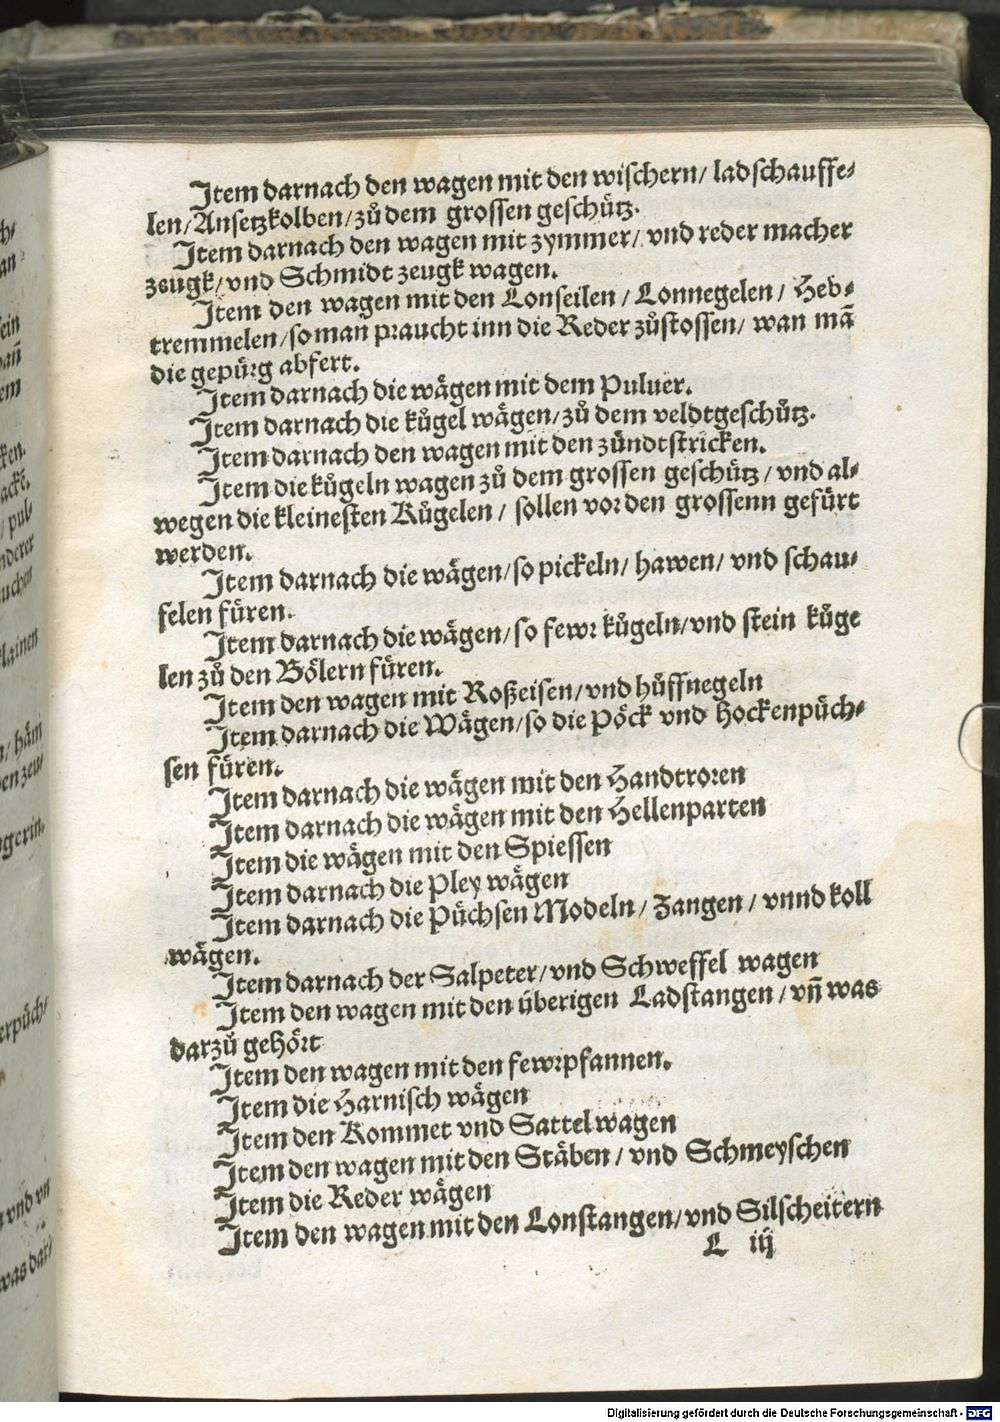 Item darnach den wagen mit den wischern/ ladschauffe⸗
len/Ansetzkolben/zů dem grossen geschütz.
Item darnach den wagen mit zymmer/ vnd reder macher
zeugk/vnd Schmidt zeugk wagen.
Item den wagen mit den Lonseilen / Lonnegelen / Heb⸗
tremmelen/so man praucht inn die Reder zůstossen/ wan mā
die gepürg abfert.
Item darnach die wägen mit dem Puluer.
Item darnach die kůgel wägen/zů dem veldtgeschůtz.
Item darnach den wagen mit den zündtstricken.
Item die kůgeln wagen zů dem grossen geschütz / vnd al⸗
wegen die kleinesten Kůgelen / sollen vor den grossenn gefürt
werden.
Item darnach die wägen/so pickeln/ hawen/ vnd schau⸗
felen füren.
Item darnach die wägen/so fewr kůgeln/vnd stein kůge
len zů den Bölern füren.
Item den wagen mit Roßeisen/vnd hůffnegeln
Item darnach die Wägen/so die Pöck vnd Hockenpüch⸗
sen füren.
Item darnach die wägen mit den Handtroren
Item darnach die wägen mit den Hellenparten
Item die wägen mit den Spiessen
Item darnach die Pley wägen
Item darnach die Püchsen Modeln/ Zangen / vnnd koll
wägen.
Item darnach der Salpeter/vnd Schweffel wagen
Item den wagen mit den überigen Ladstangen / vn̄ was
darzů gehört
Item den wagen mit den fewrpfannen.
Item die Harnisch wägen
Item den Kommet vnd Sattel wagen
Item den wagen mit den Stäben / vnd Schmeyschen
Item die Reder wägen
Item den wagen mit den Lonstangen/vnd Silscheitern
L iij
Digitalisierung gefördert durch die Deutsche Forschungsgemeinschaft - DFG